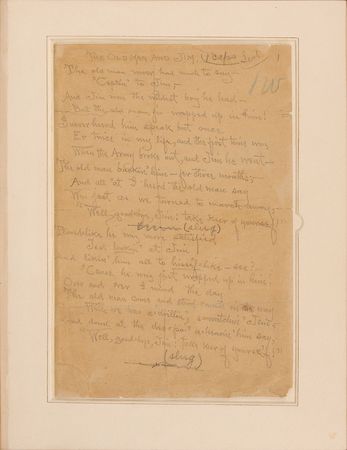 THE OLD MAN AND JIM. (caps 1
The old man never had much to say—
'Ceptin' to Jim,—
And Jim was the wildest boy he had—
And the old man jes' wrapped up in him!
Never heerd him speak but once
Er twice in my life,—and first time was
When the Army broke out, and Jim he went,—
The old man backin' him—fer three months;—
And all 'at I heerd the old man say
Was jes', as we turned to
"Well, good-bye, Jim: take keer of yourse'f!"
(slug)
he was more satisfied
Jes' lookin' at Jim
And likin' him all to hisse'f-like—see?—
'Cause he was jes' wrapped up in him!
Over and over I mind the day
The old man come and stood round in the way
While we was a-drillin', a-watchin' Jim;—
And down at the deepo a-heerin' him say,—
"Well, good-bye, Jim: take keer of yourse'f!"
(slug)